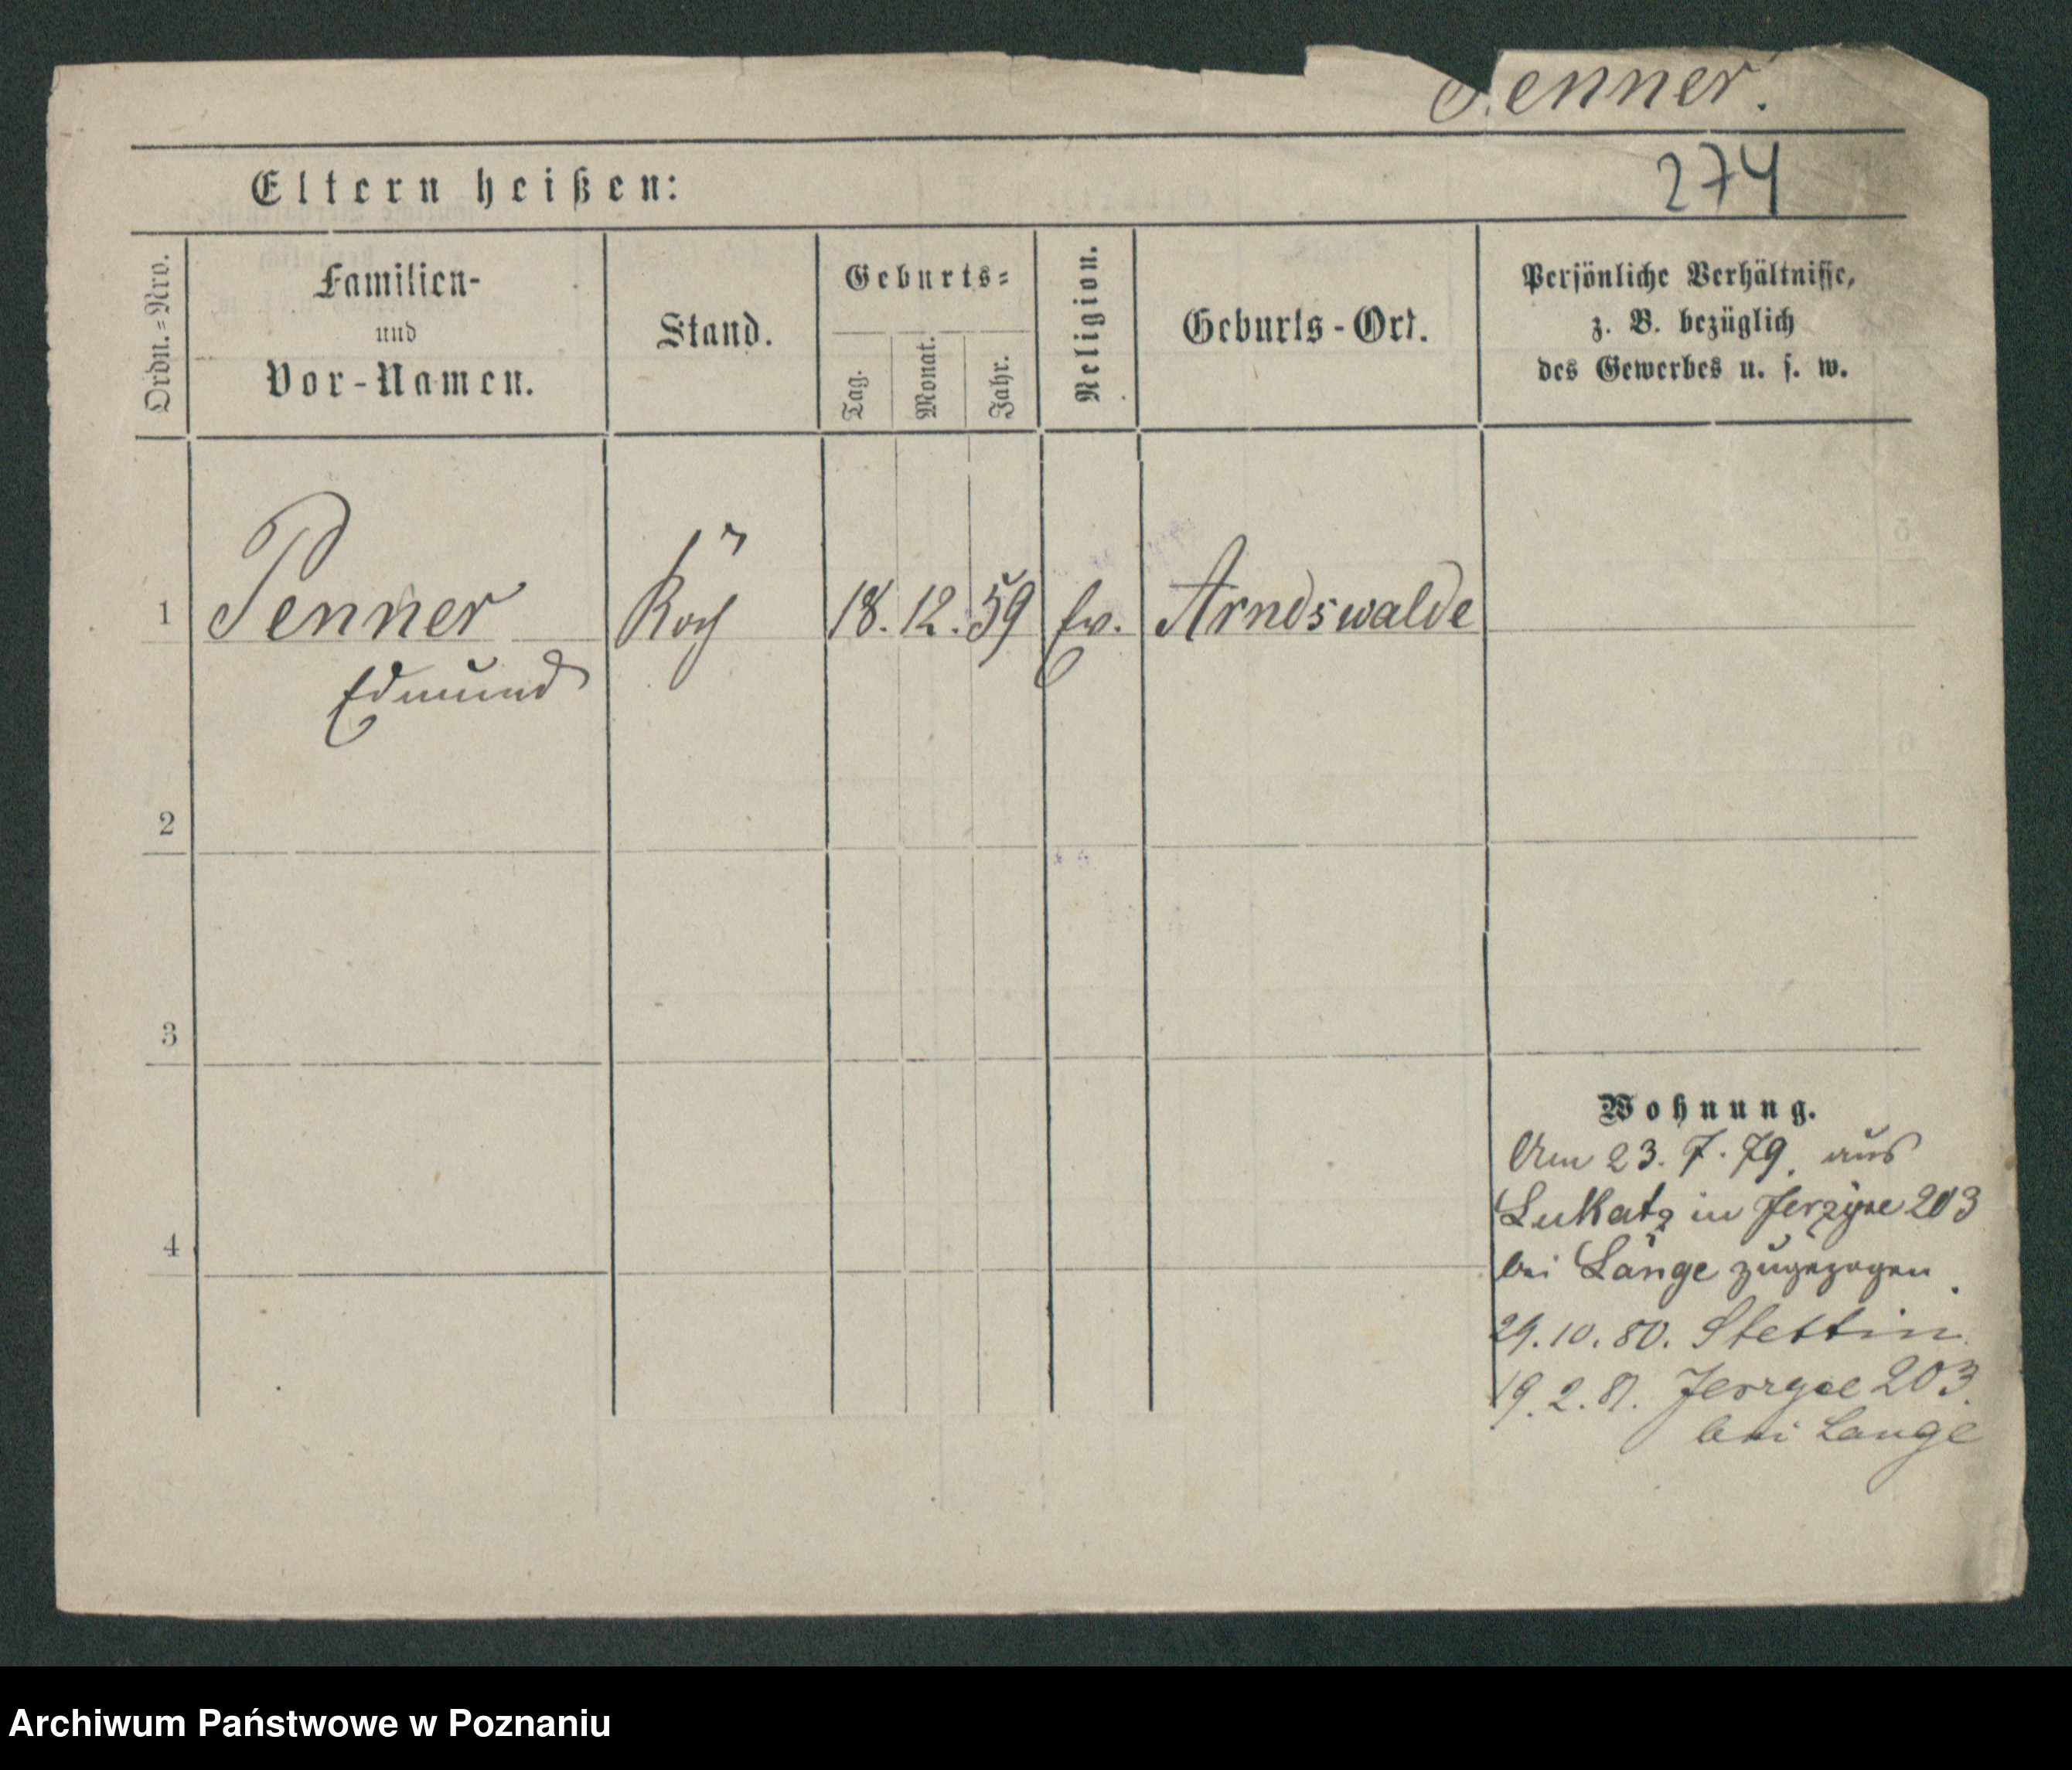 Penner.
274
Eltern heißen:
Ordn.=Nro.
Familien-
und
Vor-Namen.
Stand.
Geburts=
Tag.
Monat.
Jahr.
Religion.
Geburts-Ort.
Persönliche Verhältnisse,
z. B. bezüglich
des Gewerbes u. s. w.
1 Penner Koch 18. 12. 59 Ev. Arndswalde
Edmund
2
3
4
Wohnung.
Am 23. 7. 79. aus
Lukatz in 203
bei Lange zugezogen.
29. 10. 80. Stettin
19. 2. 81. 203.
bei Lange
Archiwum Państwowe w Poznaniu